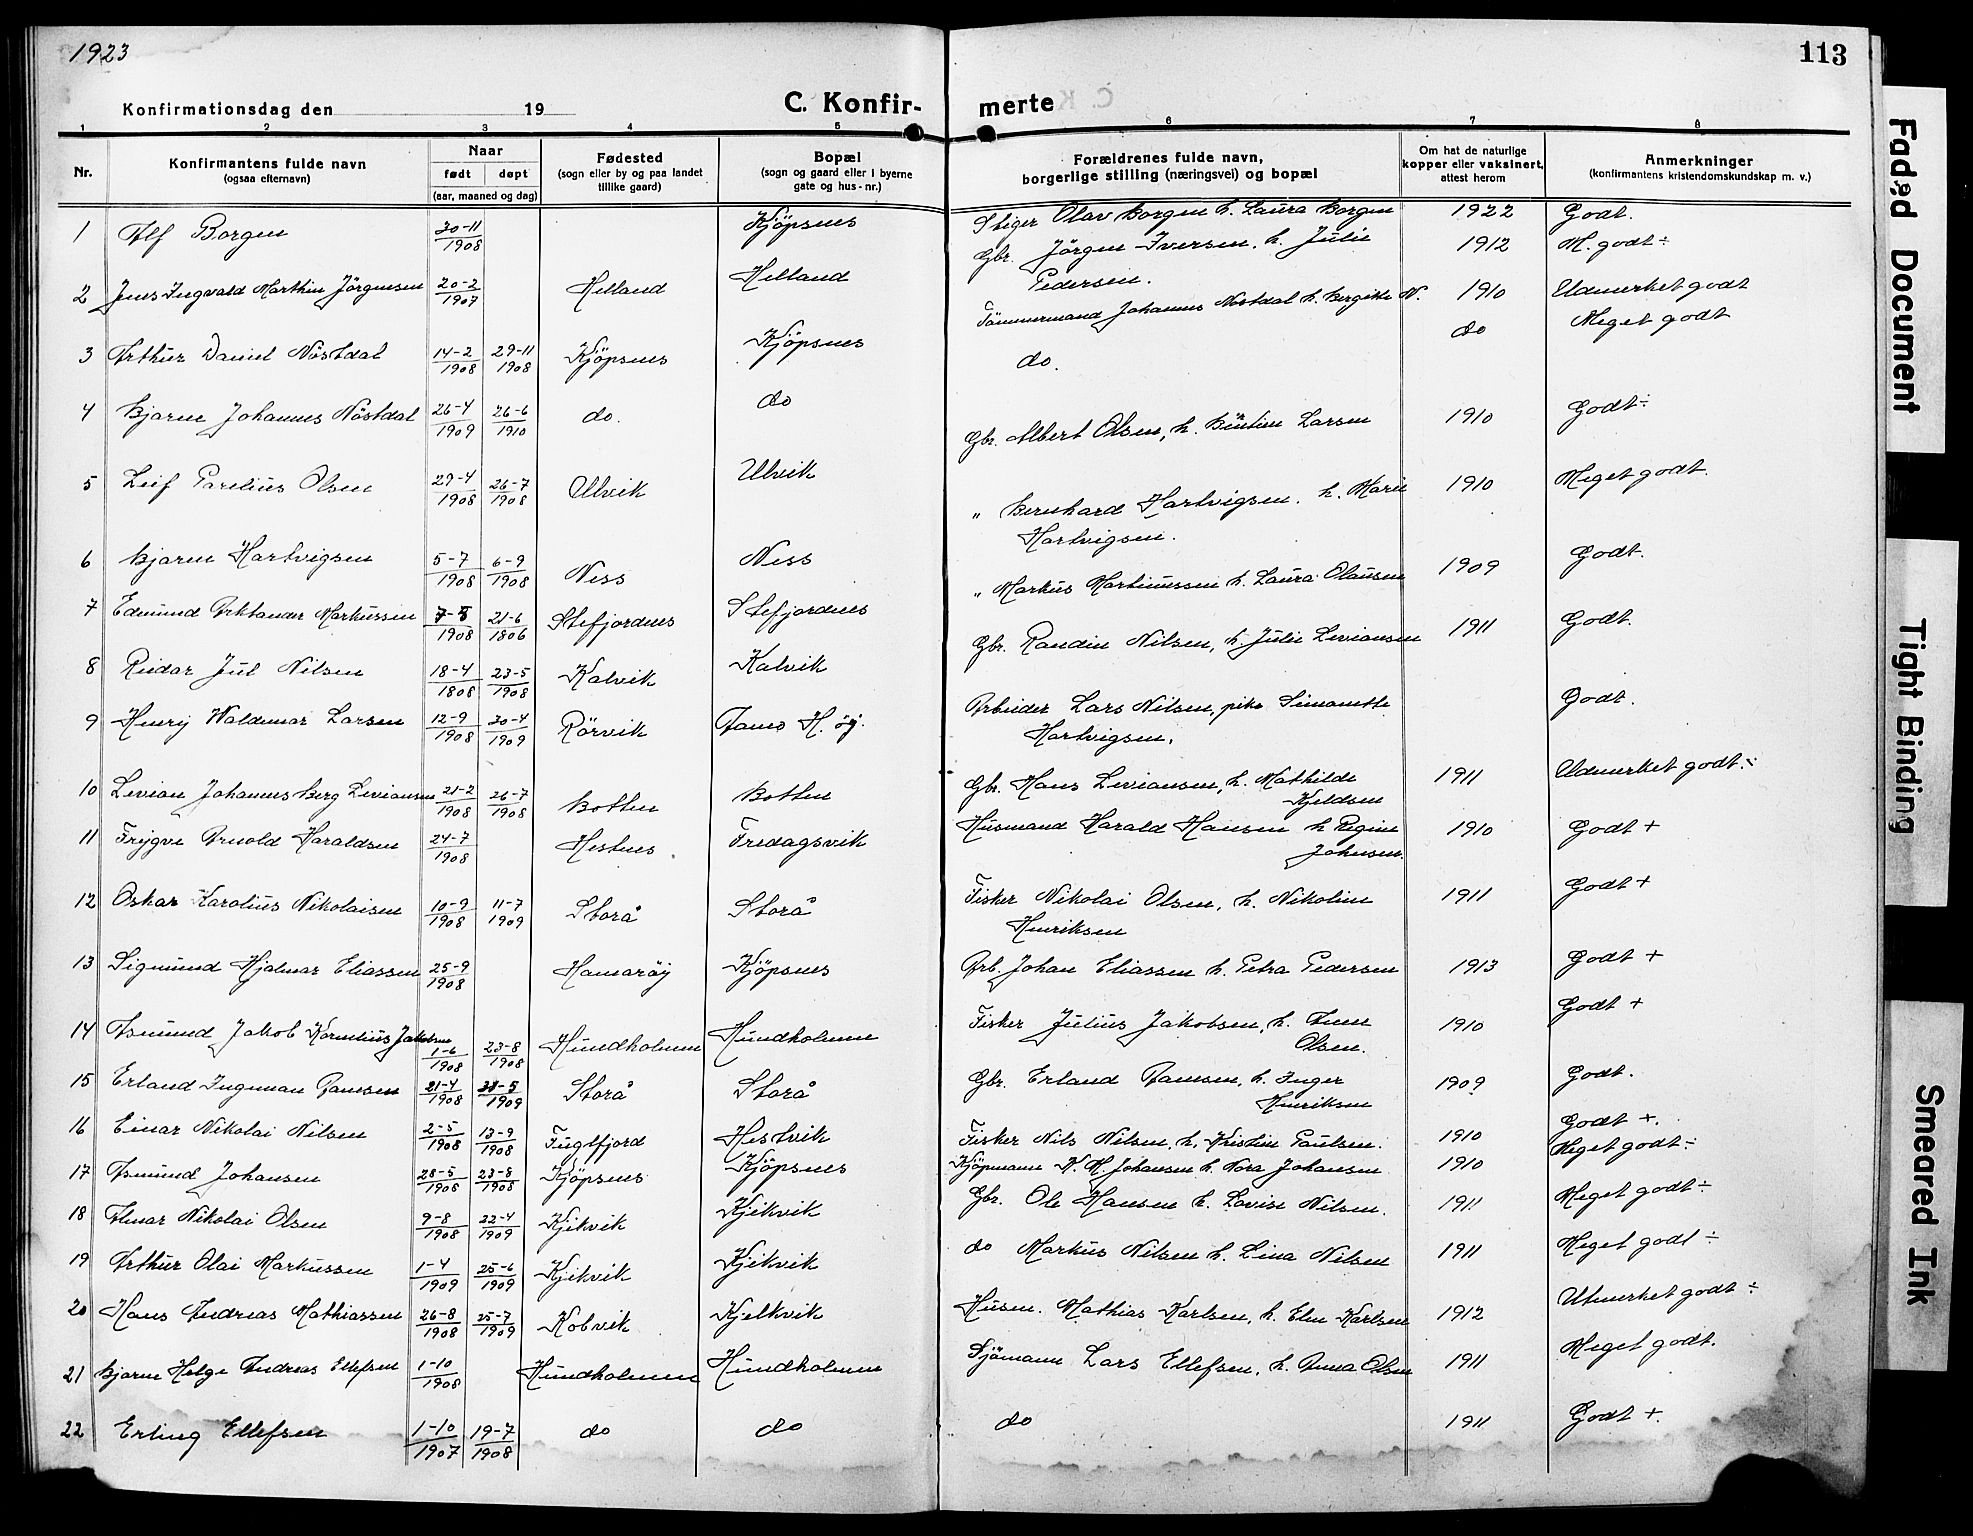 1923
113
Konfirmationsdag den 19
C. Konfir-
merte
1 2 3 4 5 6 7 8
Nr.
Konfirmantens fulde navn
(ogsaa efternavn)
Naar
født døpt
(aar, maaned og dag)
Fødested
(sogn eller by og paa landet
tillike gaard)
Bopæl
(sogn og gaard eller i byerne
gate og hus-nr.)
Forældrenes fulde navn,
borgerlige stilling (næringsvei) og bopæl
Om hat de naturlige
kopper eller vaksinert,
attest herom
Anmerkninger
(konfirmantens kristendomskundskap m. v.)
1 Alf Borgen 30-11 1908 Kjöpsnes Stiger Olav Borgen h. Laura Borgen 1922 Godt.
2 Jens Ingvald Marthin Jörgensen 20-2 1907 Helland Helland Gbr. Jörgen Iversen. h. Julie 1912 M. godt ÷
Pedersen.
3 Arthur Daniel Nöstdal 14-2 1908 29-11 1908 Kjöpsnes Kjöpsnes Tömmermand Johannes Nöstdal h. Bergitte N. 1910 Udmerket godt
4 Bjarne Johannes Nöstdal 26-4 1909 26-6 1910 do. do do. do Meget godt
5 Leif Parelius Olsen 29-4 1908 26-7 1908 Ulvik Ulvik Gbr. Albert Olsen, h. Larsen 1910 Godt ÷
6 Bjarne Hartvigsen 5-7 1908 6-9 1908 Ness Ness " Bernhard Hartvigsen. h. Marie 1910 Meget godt.
Hartvigsen.
7 Edmund Arktander Markussen 1908 21-6 1806 Stefjordnes Stefjordnes " Markus Martinussen h. Laura Olausen 1909 Godt.
8 Reidar Jul Nilsen 18-4 1808 23-5 1908 Kalvik Kalvik Gbr. Randin Nilsen, h. Julie Leviansen 1911 Godt.
9 Henry Waldemar Larsen 12-9 1908 30-4 1909 Rörvik Arbeider Lars Nilsen, pike Simonette Godt.
Hartvigsen.
10 Levian Johannes Berg Leviansen 21-2 1908 26-7 1908 Botten Botten Gbr. Hans Leviansen, h. Mathilde 1911 Udmerket godt ÷
Kjeldsen
11 Trygve Arnold Haraldsen 24-7 1908 Hestnes. Fredagsvik Husmand Harald Hansen h Regine 1910 Godt +
Johnsen.
12 Oskar Karolius Nikolaisen 10-9 1908 11-7 1909 Storå Storå Fisker Nikolai Olsen, h. Nikoline 1911 Godt +
Henriksen
13 Sigmund Hjalmar Eliassen 25-9 1908 Hamaröy Kjöpsnes Arb. Johan Eliassen h. Petra Pedersen 1913 Godt +
14 Asmund Jakob Kornelius Jakobsen 1-6 1908 23-8 1908 Hundholmen Hundholmen Fisker Julius Jakobsen, h. Anne 1910 Godt +
Olsen.
15 Erland Ingeman Ramsen 21-4 1908 1909 Storå Storå Gbr. Erland Ramsen, h. Inger 1909 Godt.
Henriksen
16 Einar Nikolai Nilsen 2-5 1908 13-9 1908 Fuglfjord Hestvik Fisker Nils Nilsen, h. Kristin Paulsen. 1910 Godt +.
17 Asmund Johansen 28-5 1908 23-8 1908 Kjöpsnes Kjöpsnes Kjöpmann K. M. Johansen h. Nora Johansen 1910 Meget godt ÷
18 Almar Nikolai Olsen 9-8 1908 22-4 1909 Kjikvik Kjikvik Gbr. Ole Hansen h. Lovise Nilsen. 1911 Meget godt ÷
19 Arthur Olai Markussen 1-4 1909 25-6 1909 Kjikvik Kjikvik do Markus Nilsen h. Lina Nilsen 1911 Meget godt ÷
20 Hans Andreas Mathiassen 26-8 1908 25-7 1909 Kobvik Kjelkvik Husm. Mathias Karlsen, h. Elen Karlsen 1912 Utmerket godt ÷
21 Bjarne Helge Andreas Ellefsen 1-10 1908 Hundholmen Hundholmen Sjömann Lars Ellefsen, h. Anna Olsen 1911 Meget godt.
22 Erling Ellefsen 1-10 1907 19-7 1908 do do do 1911 Godt +.
Faded Document
Tight Binding
Smeared Ink